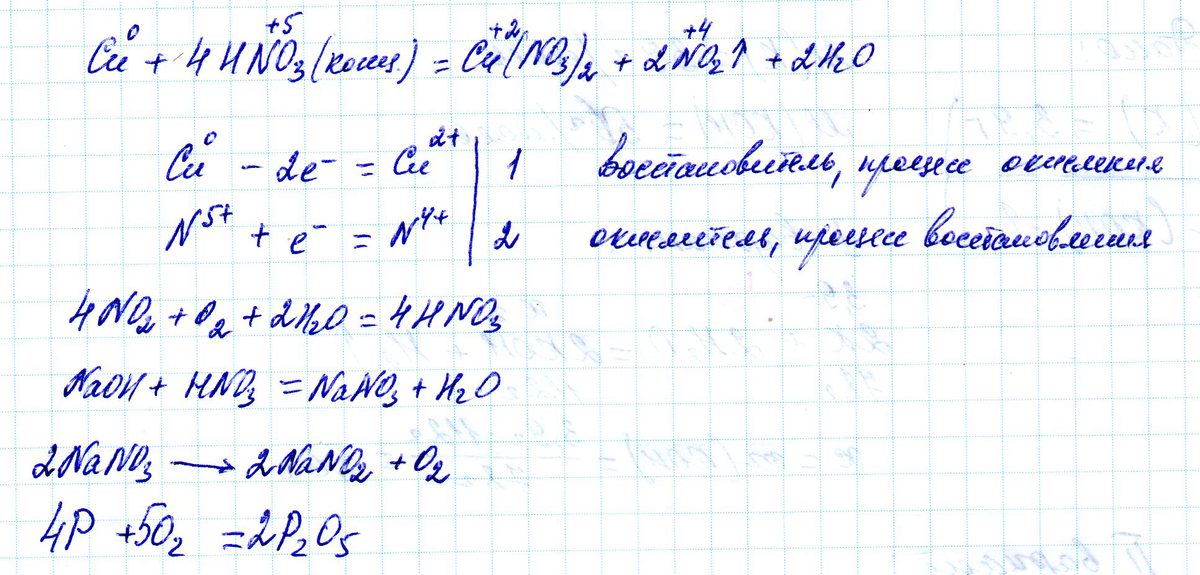 Cu⁰ + 4HN⁺⁵O₃(конц.) = Cu⁺²(NO₃)₂ + 2N⁺⁴O₂↑ + 2H₂O
Cu⁰ - 2e⁻ = Cu²⁺ | 1 восстановитель, процесс окисления
N⁵⁺ + e⁻ = N⁴⁺ | 2 окислитель, процесс восстановления
4NO₂ + O₂ + 2H₂O = 4HNO₃
NaOH + HNO₃ = NaNO₃ + H₂O
2NaNO₃ → 2NaNO₂ + O₂
4P + 5O₂ = 2P₂O₅